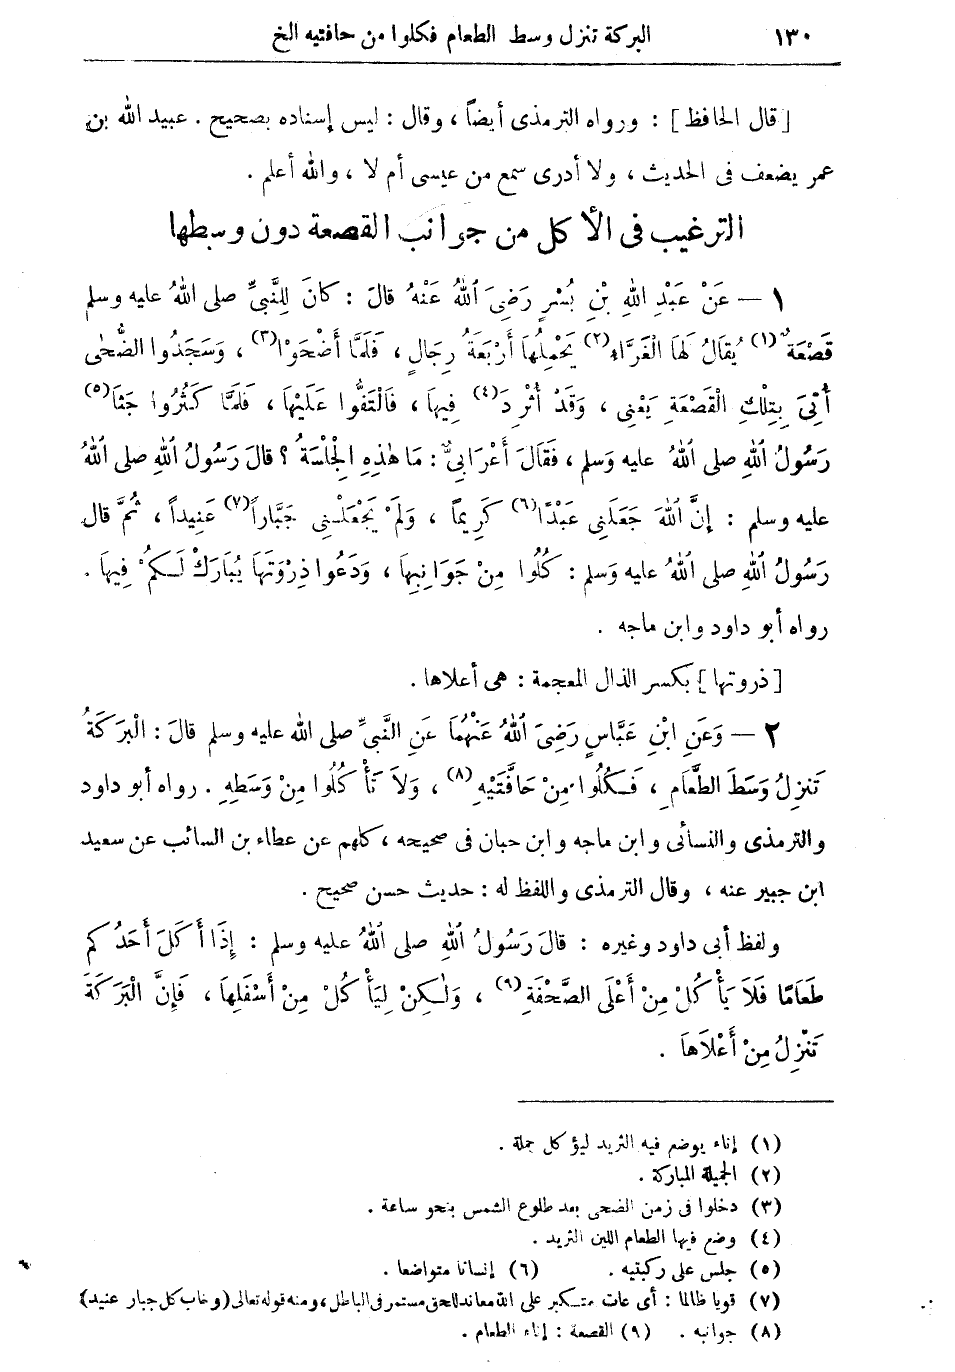 ١٣٠ البركة تنزل وسط الطعام فكلوا من حافتيه الخ
[قال الحافظ] : ورواه الترمذى أيضاً ، وقال : ليس إسناده بصحيح . عبيد الله بن
عمر يضعف فى الحديث ، ولا أدرى سمع من عيسى أم لا ، والله أعلم .
الترغيب فى الأكل من جوانب القصعة دون وسطها
١ — عَنْ عَبْدِ اللهِ بْنِ بُسْرٍ رَضِىَ اللهُ عَنْهُ قالَ : كانَ لِلنَّبِىِّ صلى اللهُ عليه وسلم
قَصْعَةٌ (١) يُقَالُ لَهَا الْغَرَّاءُ (٢) يَحْمِلُهَا أَرْبَعَةُ رِجَالٍ ، فَلَمَّا أَضْحَوْا (٣) ، وَسَجَدُوا الضُّحٰى
أُتِىَ بِتِلْكِ الْقَصْعَةِ يَعْنِى ، وَقَدْ أُثْرِدَ (٤) فِيهَا ، فَالْتَفُّوا عَلَيْهَا ، فَلَمَّا كَثُرُوا جَثَا (٥)
رَسُولُ اللهِ صلى اللهُ عليه وَسلم ، فَقَالَ أَعْرَابِىٌّ : مَا هٰذِهِ الْجِلْسَةُ ؟ قالَ رَسُولُ اللهِ صلى اللهُ
عليه وسلم : إِنَّ اللهَ جَعَلَنِى عَبْدًا (٦) كَرِيماً ، وَلَمْ يَجْعَلْنِى جَبَّاراً (٧) عَنِيداً ، ثُمَّ قال
رَسُولُ اللهِ صلى اللهُ عليه وَسلم : كُلُوا مِنْ جَوَانِبِهَا ، وَدَعُوا ذِرْوَتَهَا يُبَارَكْ لَكُمْ فِيهَا .
رواه أبو داود وابن ماجه .
[ذروتها] بكسر الذال المعجمة : هى أعلاها .
٢ — وَعَنِ ابْنِ عَبَّاسٍ رَضِىَ اللهُ عَنْهُمَا عَنِ النَّبِىِّ صلى الله عليه وسلم قالَ : الْبَرَكَةُ
تَنْزِلُ وَسَطَ الطَّعَامِ ، فَكُلُوا مِنْ حَافَّتَيْهِ (٨) ، وَلاَ تَأْكُلُوا مِنْ وَسَطِهِ . رواه أبو داود
والترمذى والنسائى وابن ماجه وابن حبان فى صحيحه ، كلهم عن عطاء بن السائب عن سعيد
ابن جبير عنه ، وقال الترمذى واللفظ له : حديث حسن صحيح .
ولفظ أبى داود وغيره : قالَ رَسُولُ اللهِ صلى اللهُ عليه وسلم : إِذَا أَكَلَ أَحَدُكم
طَعَامًا فَلاَ يَأْكُلْ مِنْ أَعْلَى الصَّحْفَةِ (٩) ، وَلٰكِنْ لِيَأْكُلْ مِنْ أَسْفَلِهَا ، فَإِنَّ الْبَرَكَةَ
تَنْزِلُ مِنْ أَعْلَاهَا .
(١) إناء يوضع فيه الثريد ليؤكل جملة .
(٢) الجميلة المباركة .
(٣) دخلوا فى زمن الضحى بعد طلوع الشمس بنحو ساعة .
(٤) وضع فيها الطعام اللين الثريد .
(٥) جلس على ركبتيه . (٦) إنسانا متواضعا .
(٧) قويا ظالما : أى عات متكبر على الله معاند للحق مستمر فى الباطل ، ومنه قوله تعالى (وخاب كل جبار عنيد)
(٨) جوانبه . (٩) القصعة : إناء الطعام .